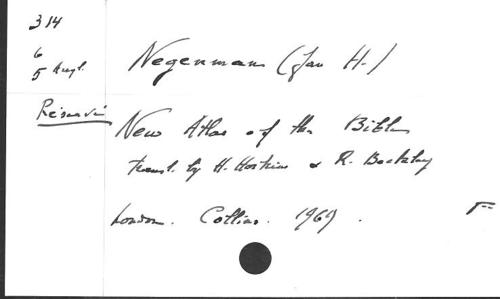 314
6
5 Angl.
Réservé
Negenman (Jan H.)
New Atlas of the Bible
transl. by H. Hoskins & R. Beckley
London. Collins. 1969.